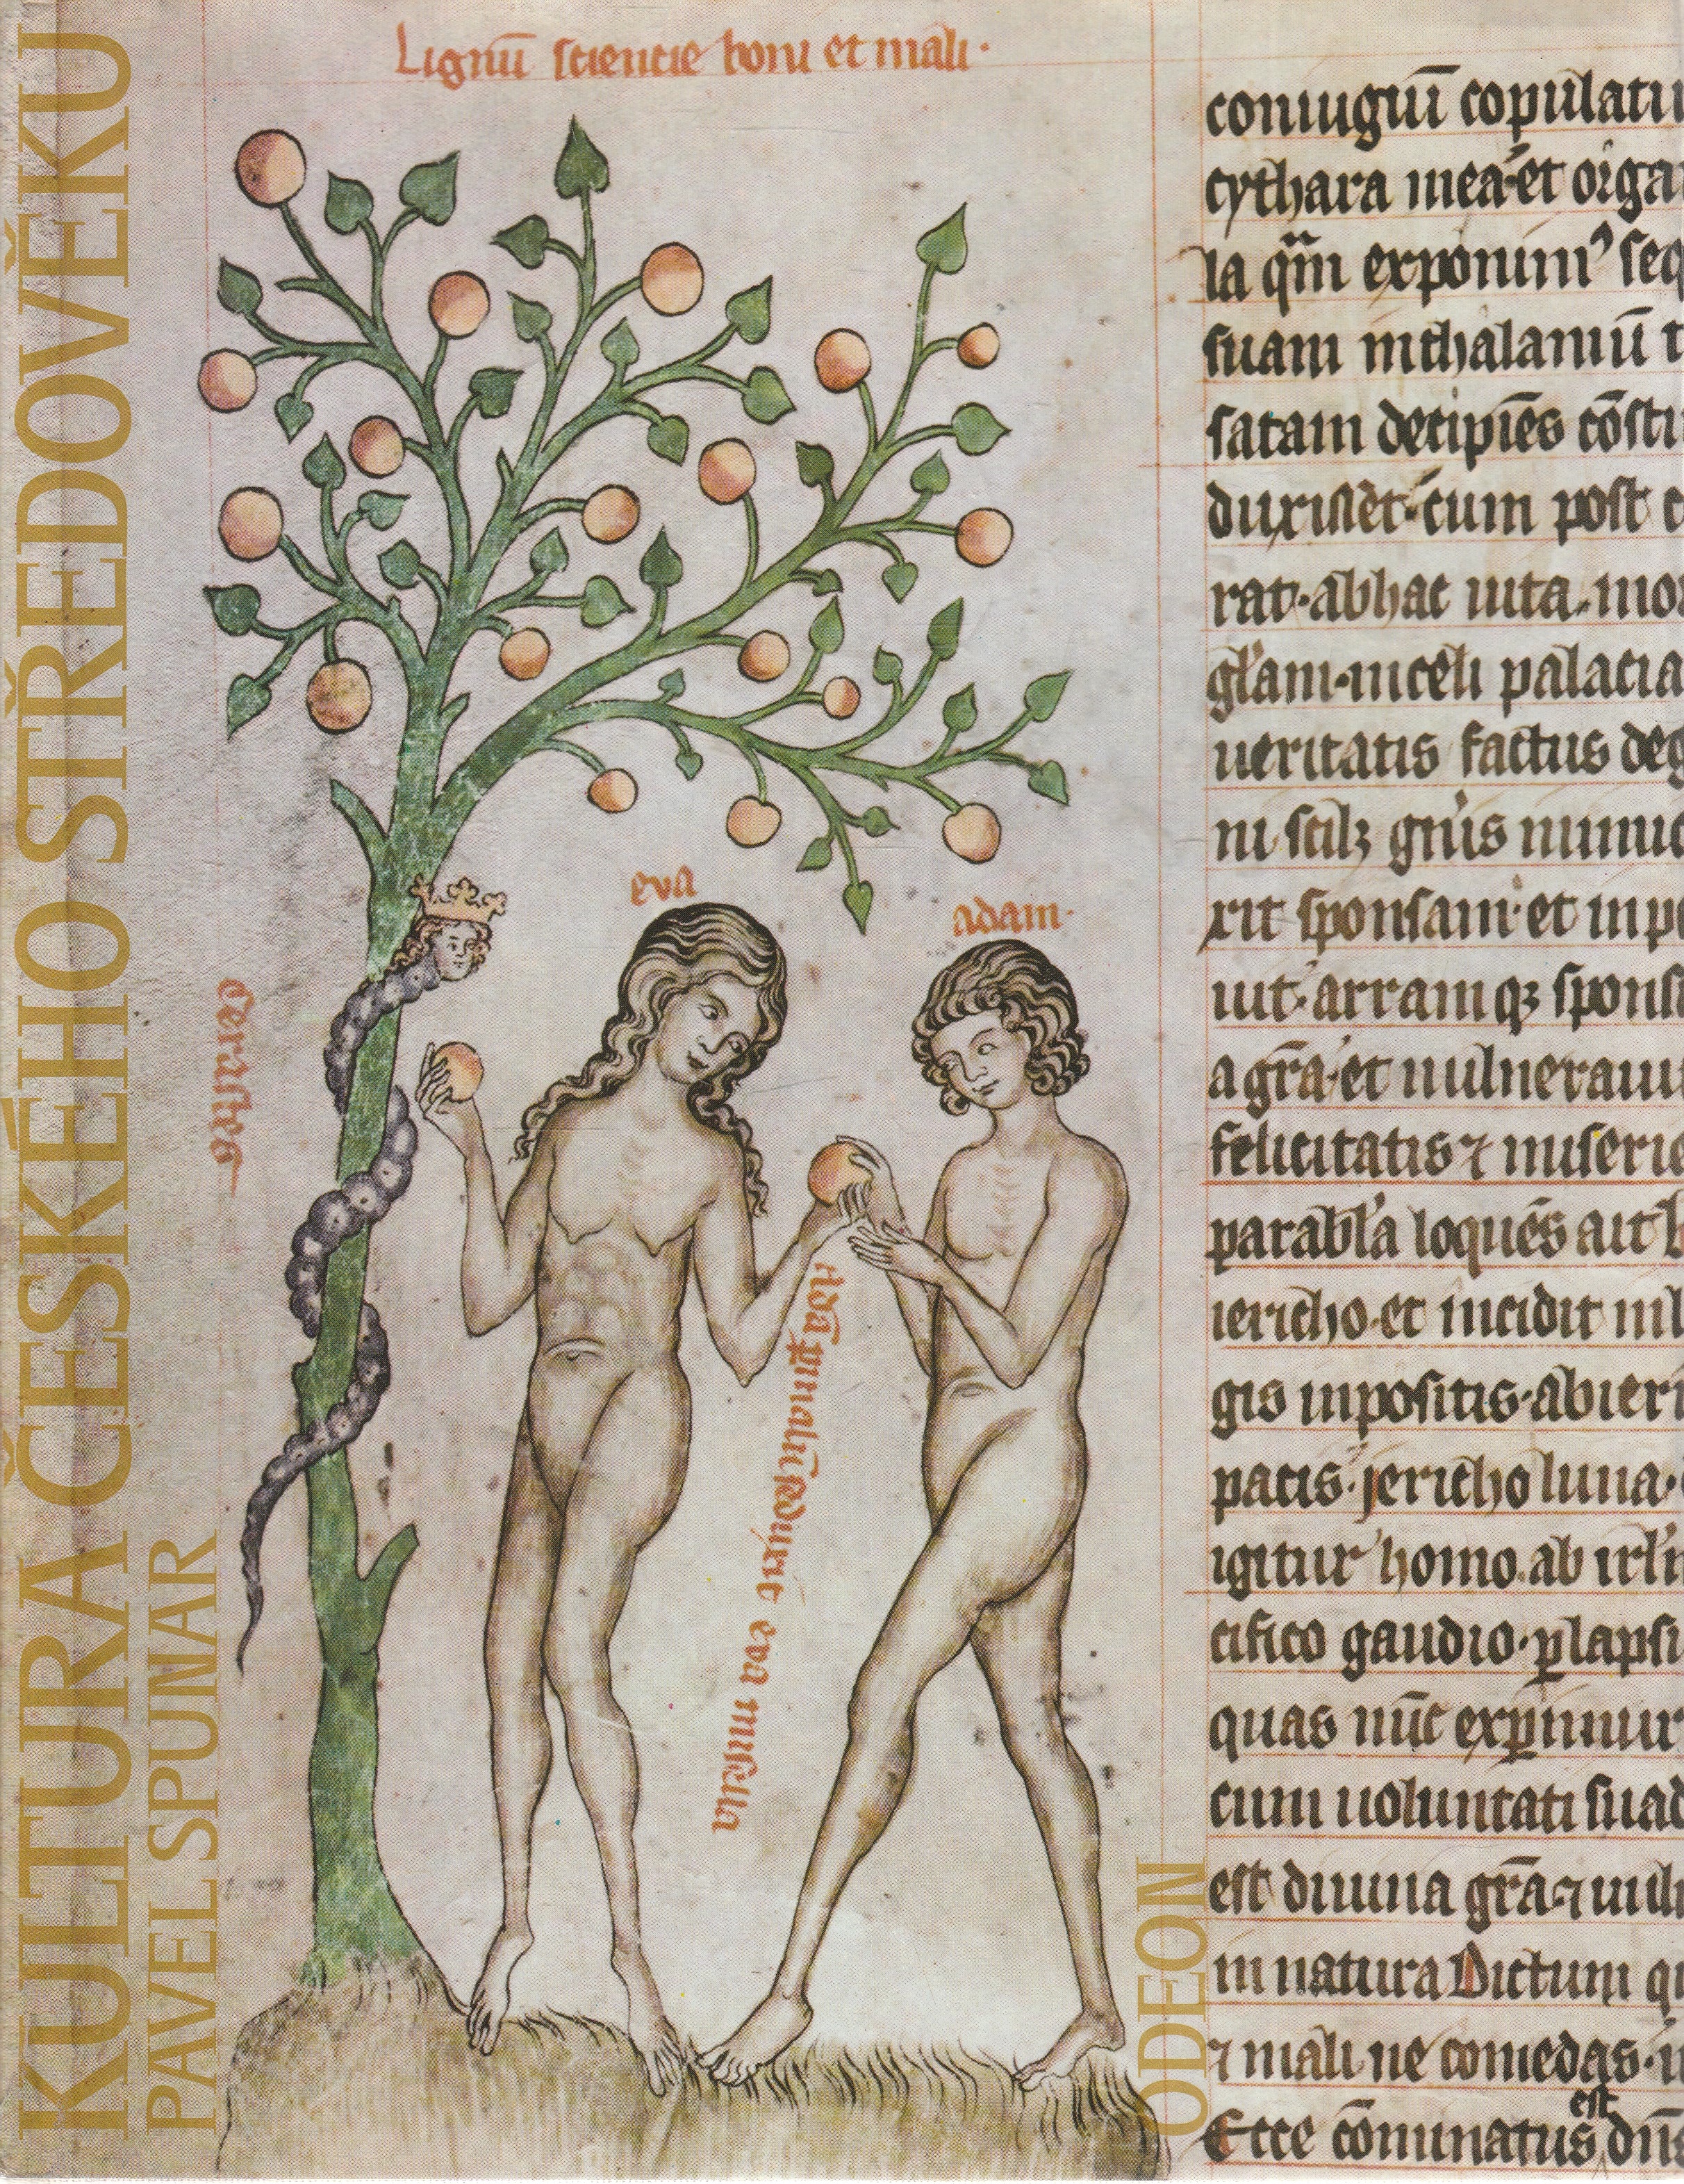 KULTURA ČESKÉHO STŘEDOVĚKU
PAVEL SPUNAR
Lignū sciencie boni et mali·
eva
adam·
cerastes
eva misella
ODEON
coniugiū copulatu
cythara mea·et orga
la qm̄ exponim⁹ seq
suam inthalamū t
satam decipiēs cōsti
duxisset·cum post
rat·abhac uita·mo
gl̄am·inceli palacia
ueritatis factus deg
ni scilꝫ gn̄is
xit sponsam·et inp
iut·arramqꝫ spons
a gr̄a·et uulneraui
felicitatis⁊ miserie
parabl̄a loquēs ait
iericho·et incidit
gis inpositis·abier
pacis·jericho luna·
igitur homo·ab irl̄m
cifico gaudio·ꝑlapsu
quas nūc exprimur
cum uoluntati suad
est diuina gr̄a·⁊uul
in natura Dictum qu
⁊ mali ne comedas·
Ecce cōminatus est dn̄s